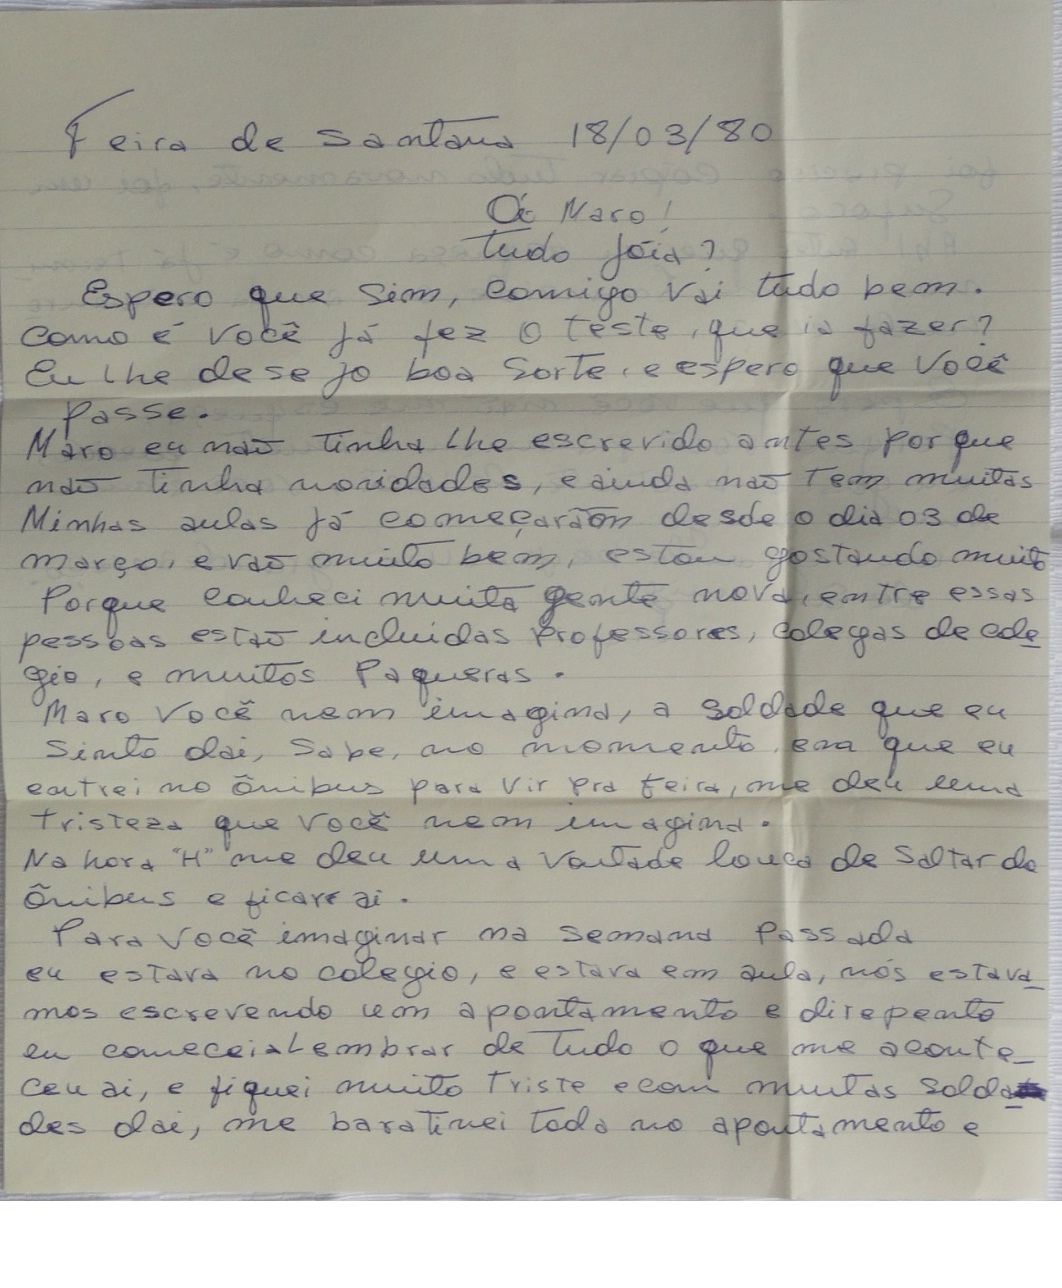 Feira de Santana 18/03/80
Oi Maro!
Tudo jóia?
Espero que sim, comigo vai tudo bem.
Como é você já fez o teste, que ia fazer?
Eu lhe desejo boa sorte, e espero que você
passe.
Maro eu não tinha lhe escrevido antes por que
não tinha novidades, e ainda não tem muitas
Minhas aulas já começarão desde o dia 03 de
março, e vão muito bem, estou gostando muito
Porque conheci muita gente nova, entre essas
pessoas estão incluidas professores, colegas de cole
gio, e muitos paqueras.
Maro você nem imagina, a soldade que eu
sinto dai, sabe, no momento, em que eu
entrei no ônibus para vir pra feira, me deu uma
tristeza que você nem imagina.
Na hora "H" me deu uma vontade louca de saltar do
ônibus e ficar ai.
Para você imaginar na semana passada
eu estava no colegio, e estava em aula, nós estava_
mos escrevendo um apontamento e direpente
eu comecei a Lembrar de tudo o que me aconte_
ceu ai, e fiquei muito triste e com muitas solda
des dai, me baratinei toda no apontamento e